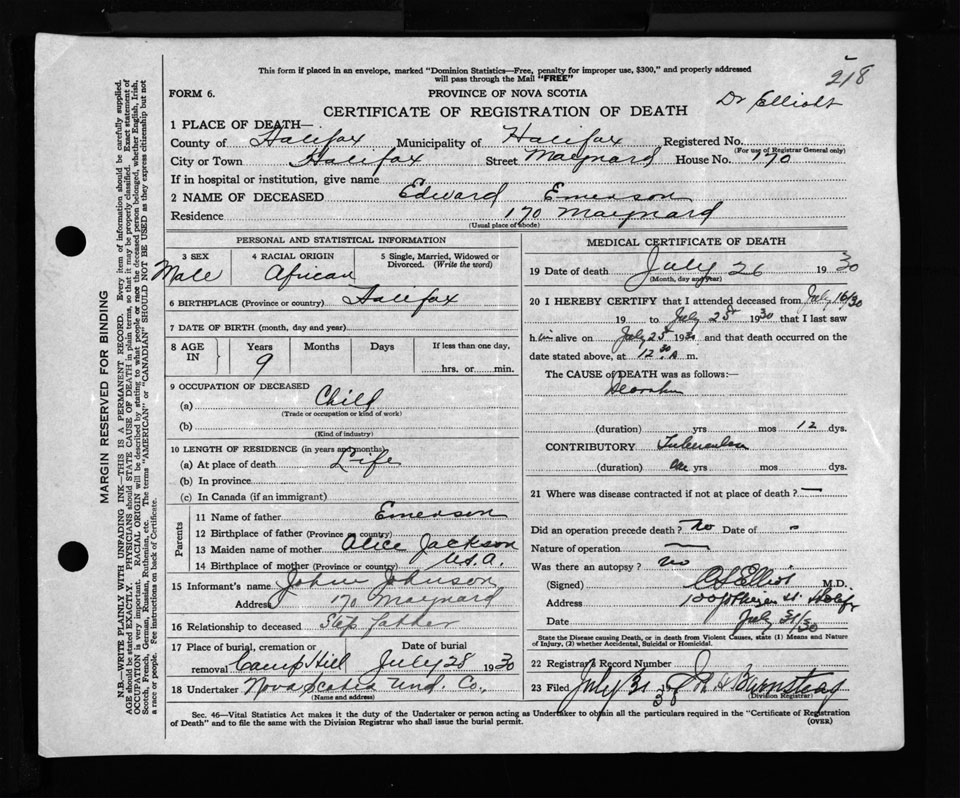 This form if placed in an envelope, marked "Dominion Statistics—Free, penalty for improper use, $300," and properly addressed
will pass through the Mail "FREE"
218
FORM 6.
PROVINCE OF NOVA SCOTIA
Dr Elliott
CERTIFICATE OF REGISTRATION OF DEATH
1 PLACE OF DEATH—
County of Halifax Municipality of Halifax Registered No.
(For use of Registrar General only)
City or Town Halifax Street Maynard House No. 170
If in hospital or institution, give name
2 NAME OF DECEASED Edward Emerson
Residence 170 Maynard
(Usual place of abode)
PERSONAL AND STATISTICAL INFORMATION
3 SEX 4 RACIAL ORIGIN 5 Single, Married, Widowed or Divorced. (Write the word)
Male African
6 BIRTHPLACE (Province or country) Halifax
7 DATE OF BIRTH (month, day and year)
8 AGE IN Years Months Days If less than one day,
9 hrs. or min.
9 OCCUPATION OF DECEASED
(a) Child
(Trade or occupation or kind of work)
(b)
(Kind of industry)
10 LENGTH OF RESIDENCE (in years and months)
(a) At place of death Life
(b) In province
(c) In Canada (if an immigrant)
Parents
11 Name of father Emerson
12 Birthplace of father (Province or country)
13 Maiden name of mother Alice Jackson
14 Birthplace of mother (Province or country) U.S.A.
15 Informant's name John Johnson
Address 170 Maynard
16 Relationship to deceased Step Father
17 Place of burial, cremation or removal Camp Hill Date of burial July 28 1930
18 Undertaker Nova Scotia Und. Co.,
(Name and address)
MEDICAL CERTIFICATE OF DEATH
19 Date of death July 26 1930
(Month, day and year)
20 I HEREBY CERTIFY that I attended deceased from July 16/30
19 to July 25th 1930 that I last saw
him alive on July 25th 1930 and that death occurred on the
date stated above, at 12 30 A m.
The CAUSE of DEATH was as follows:—
(duration) yrs mos 12 dys.
CONTRIBUTORY
(duration) One yrs mos dys.
21 Where was disease contracted if not at place of death? —
Did an operation precede death? No Date of
Nature of operation
Was there an autopsy? No
(Signed) Elliot M.D.
Address
Date July 31/30
State the Disease causing Death, or in death from Violent Causes, state (1) Means and Nature of Injury, (2) whether Accidental, Suicidal or Homicidal.
22 Registrar's Record Number
23 Filed July 31 30
(Division Registrar)
Sec. 46—Vital Statistics Act makes it the duty of the Undertaker or person acting as Undertaker to obtain all the particulars required in the "Certificate of Registration
of Death" and to file the same with the Division Registrar who shall issue the burial permit. (OVER)
MARGIN RESERVED FOR BINDING
N.B.—WRITE PLAINLY WITH UNFADING INK—THIS IS A PERMANENT RECORD. Every item of information should be carefully supplied.
AGE should be stated EXACTLY. PHYSICIANS should STATE CAUSE OF DEATH in plain terms, so that it may be properly classified. Exact statement of
OCCUPATION is very important. RACIAL ORIGIN will be described by stating to what people or race the deceased person belonged, whether English, Irish,
Scotch, French, German, Russian, Ruthenian, etc. The terms "AMERICAN" or "CANADIAN" SHOULD NOT BE USED as they express citizenship but not
a race or people. See instructions on back of Certificate.